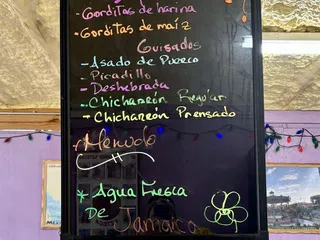 -Gorditas de harina
-Gorditas de maíz
Guisados
-Asado de Puerco
-Picadillo
-Deshebrada
-Chicharrón Regular
-Chicharrón Prensado
-Menudo
* Agua Fresca
De Jamaica